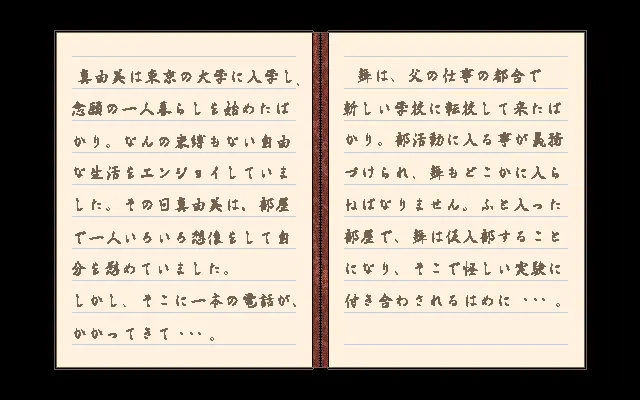 真由美は東京の大学に入学し、
念願の一人暮らしを始めたば
かり。なんの束縛もない自由
な生活をエンジョイしていま
した。その日真由美は、部屋
で一人いろいろ想像をして自
分を慰めていました。
しかし、そこに一本の電話が、
かかってきて・・・。
舞は、父の仕事の都合で
新しい学校に転校して来たば
かり。部活動に入る事が義務
づけられ、舞もどこかに入ら
ねばなりません。ふと入った
部屋で、舞は仮入部すること
になり、そこで怪しい実験に
付き合わされるはめに・・・。